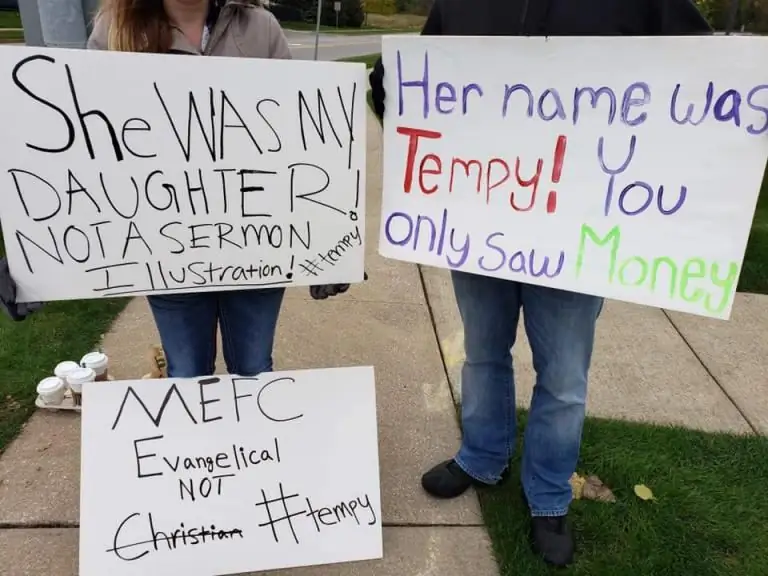 She WAS MY
DAUGHTER!
NOT A SERMON
Illustration! #tempy
Her name was
Tempy! You
only saw Money
MEFC
Evangelical
NOT
Christian #tempy